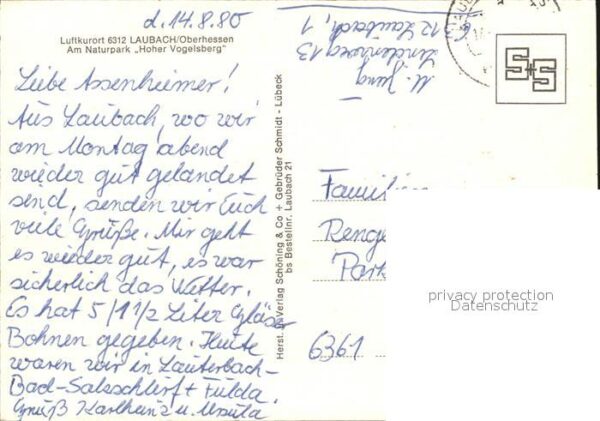 d. 14.8.80
Luftkurort 6312 LAUBACH/Oberhessen
Am Naturpark „Hoher Vogelsberg"
Liebe Assenheimer!
Aus Laubach, wo wir
am Montag abend
wieder gut gelandet
sind, senden wir Euch
viele Grüße. Mir geht
es wieder gut, es war
sicherlich das Wetter.
Es hat 5/1 1/2 Liter Gläser
Bohnen gegeben. Heute
waren wir in Lauterbach-
Bad-Salzschlirf + Fulda.
Gruß Karlheinz u. Ursula
Herst. u. Verlag Schöning & Co + Gebrüder Schmidt - Lübeck
bs Bestellnr. Laubach 21
M. Jung
Lindenweg 13
6312 Laubach, 1
S+S
Famili
Renge
Park
6361
privacy protection
Datenschutz